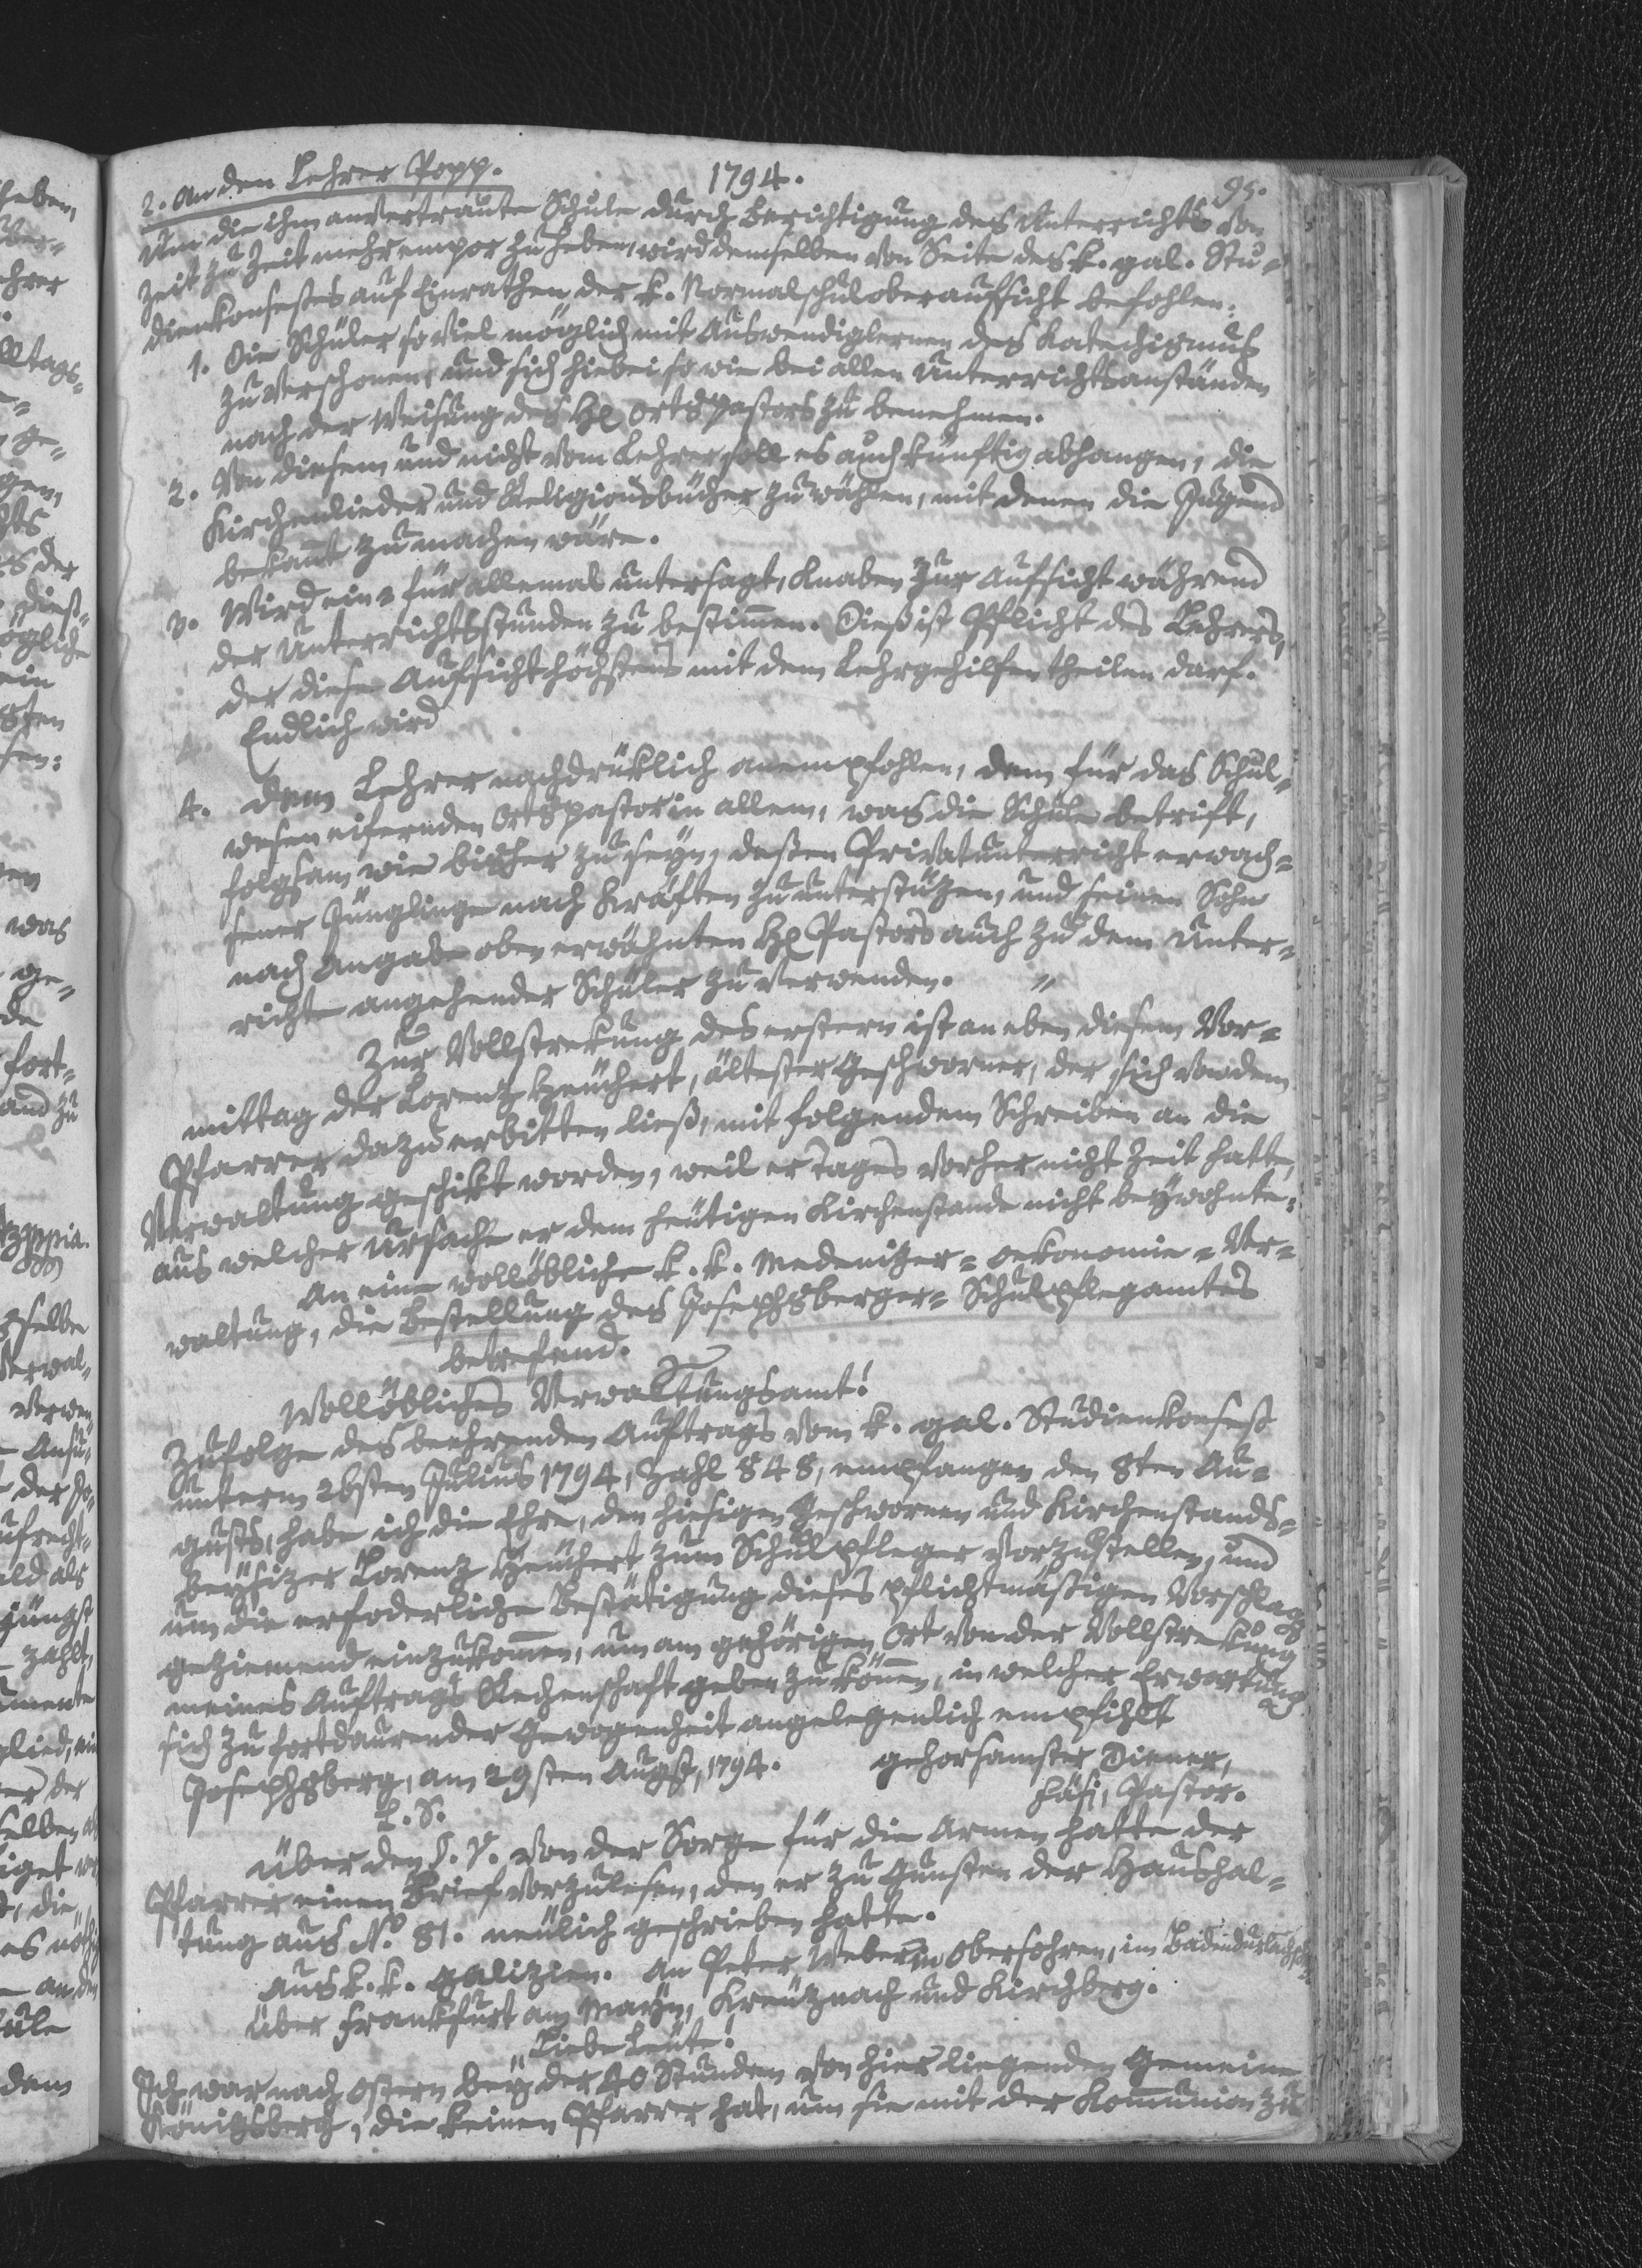 2. An den Lehrer Popp. 1794. 95.
Um die ihm anvertraute Schule durch Berichtigung des Unterrichts von
Zeit zu Zeit mehr empor zu heben, wird demselben von Seite des k. gal. Stu-
dienkonsesses auf Einrathen der k. Normalschuloberaufsicht befohlen:
1. Die Schüler so viel möglich mit Auswendiglernen des Katechismus
zu verschonen, und sich hiebei so wie bei allen Unterrichtsanständen
nach der Weisung des H. Ortspastors zu benehmen.
2. Von diesem und nicht vom Lehrer soll es auch künftig abhangen, die
Kirchenlieder und Religionsbücher zu wählen, mit denen die Jugend
bekannt zu machen wäre.
3. Wird ein für allemal untersagt, Knaben zur Aufsicht während
der Unterrichtsstunden zu bestim̄en. Dieß ist Pflicht des Lehrers,
der diese Aufsicht höchstens mit dem Lehrgehilfen theilen darf.
Endlich wird
4. dem Lehrer nachdrüklich anempfohlen, dem für das Schul-
wesen eifernden Ortspastor in allem, was die Schule betrift,
folgsam wie bisher zu seyn, deßen Privatunterricht erwach-
sener Jünglinge nach Kräften zu unterstützen, und seinen Sohn
nach Angabe oben erwähnten H. Pastors auch zu dem Unter-
richte angehender Schüler zu verwenden. "
Zur Vollstrekung des erstern ist an eben diesem Vor-
mittag der Lorenz Heuchert, ältester Geschworner, der sich von dem
Pfarrer dazu erbitten ließ, mit folgendem Schreiben an die
Verwaltung geschikt worden, weil er Tages vorher nicht Zeit hatte,
aus welcher Ursache er dem heutigen Kirchenstande nicht beywohnte.
An eine wollöbliche k. k. Medenitzer- Oekonomie- Ver-
waltung, die Bestellung des Josephsberger- Schulpflegamtes
betrefend.
Wollöbliches Verwaltungsamt!
Zufolge des beehrenden Auftrags vom k. gal. Studienkonseß
unterm 26sten Julius 1794, Zahl 848, empfangen den 8ten Au-
gusts, habe ich die Ehre, den hiesigen Geschwornen und Kirchenstands-
beysizer Lorenz Heuchert zum Schulpfleger vorzustellen, und
um die erfoderliche Bestätigung dieses pflichtmäßigen Vorschlags
geziemend einzukom̄en, um am gehörigen Ort von der Vollstrekung
meines Auftrags Rechenschaft geben zu kön̄en, in welcher Erwartung
sich zu fortdaurender Gewogenheit angelegenlich empfihlt
Josephsberg, am 29sten Augst, 1794. gehorsamster Diener,
L. S. Fäsi, Pastor.
Über den §. V. von der Sorge für die Armen hatte der
Pfarrer einen Brief vorzulesen, den er zu Gunsten der Haushal-
tung aus N.° 81. neulich geschrieben hatte.
Aus k. k. Galizien. An Peter Weber in Obersohren, im Badendurlachschen
über Frankfurt am Mayn, Kreuznach und Kirchberg.
"Liebe Leute!
Ich war nach Ostern bey der 40 Stunden von hier liegenden Gemeine
Königsberg, die keinen Pfarrer hat, um sie mit der Kom̄union zu